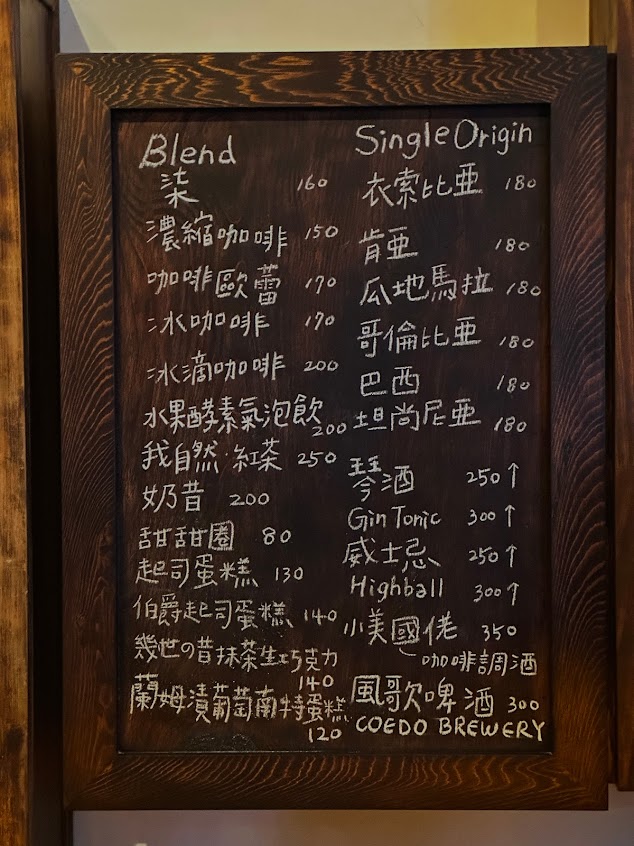 Blend
柒 160
濃縮咖啡 150
咖啡歐蕾 170
冰咖啡 170
冰滴咖啡 200
水果酵素氣泡飲 200
我自然·紅茶 250
奶昔 200
甜甜圈 80
起司蛋糕 130
伯爵起司蛋糕 140
幾世の昔抹茶生巧克力 140
蘭姆漬葡萄南特蛋糕 120
Single Origin
衣索比亜 180
肯亜 180
瓜地馬拉 180
哥倫比亜 180
巴西 180
坦尚尼亜 180
琴酒 250↑
Gin Tonic 300↑
威士忌 250↑
Highball 300↑
小美國佬 350
咖啡調酒
風歌啤酒 300
COEDO BREWERY